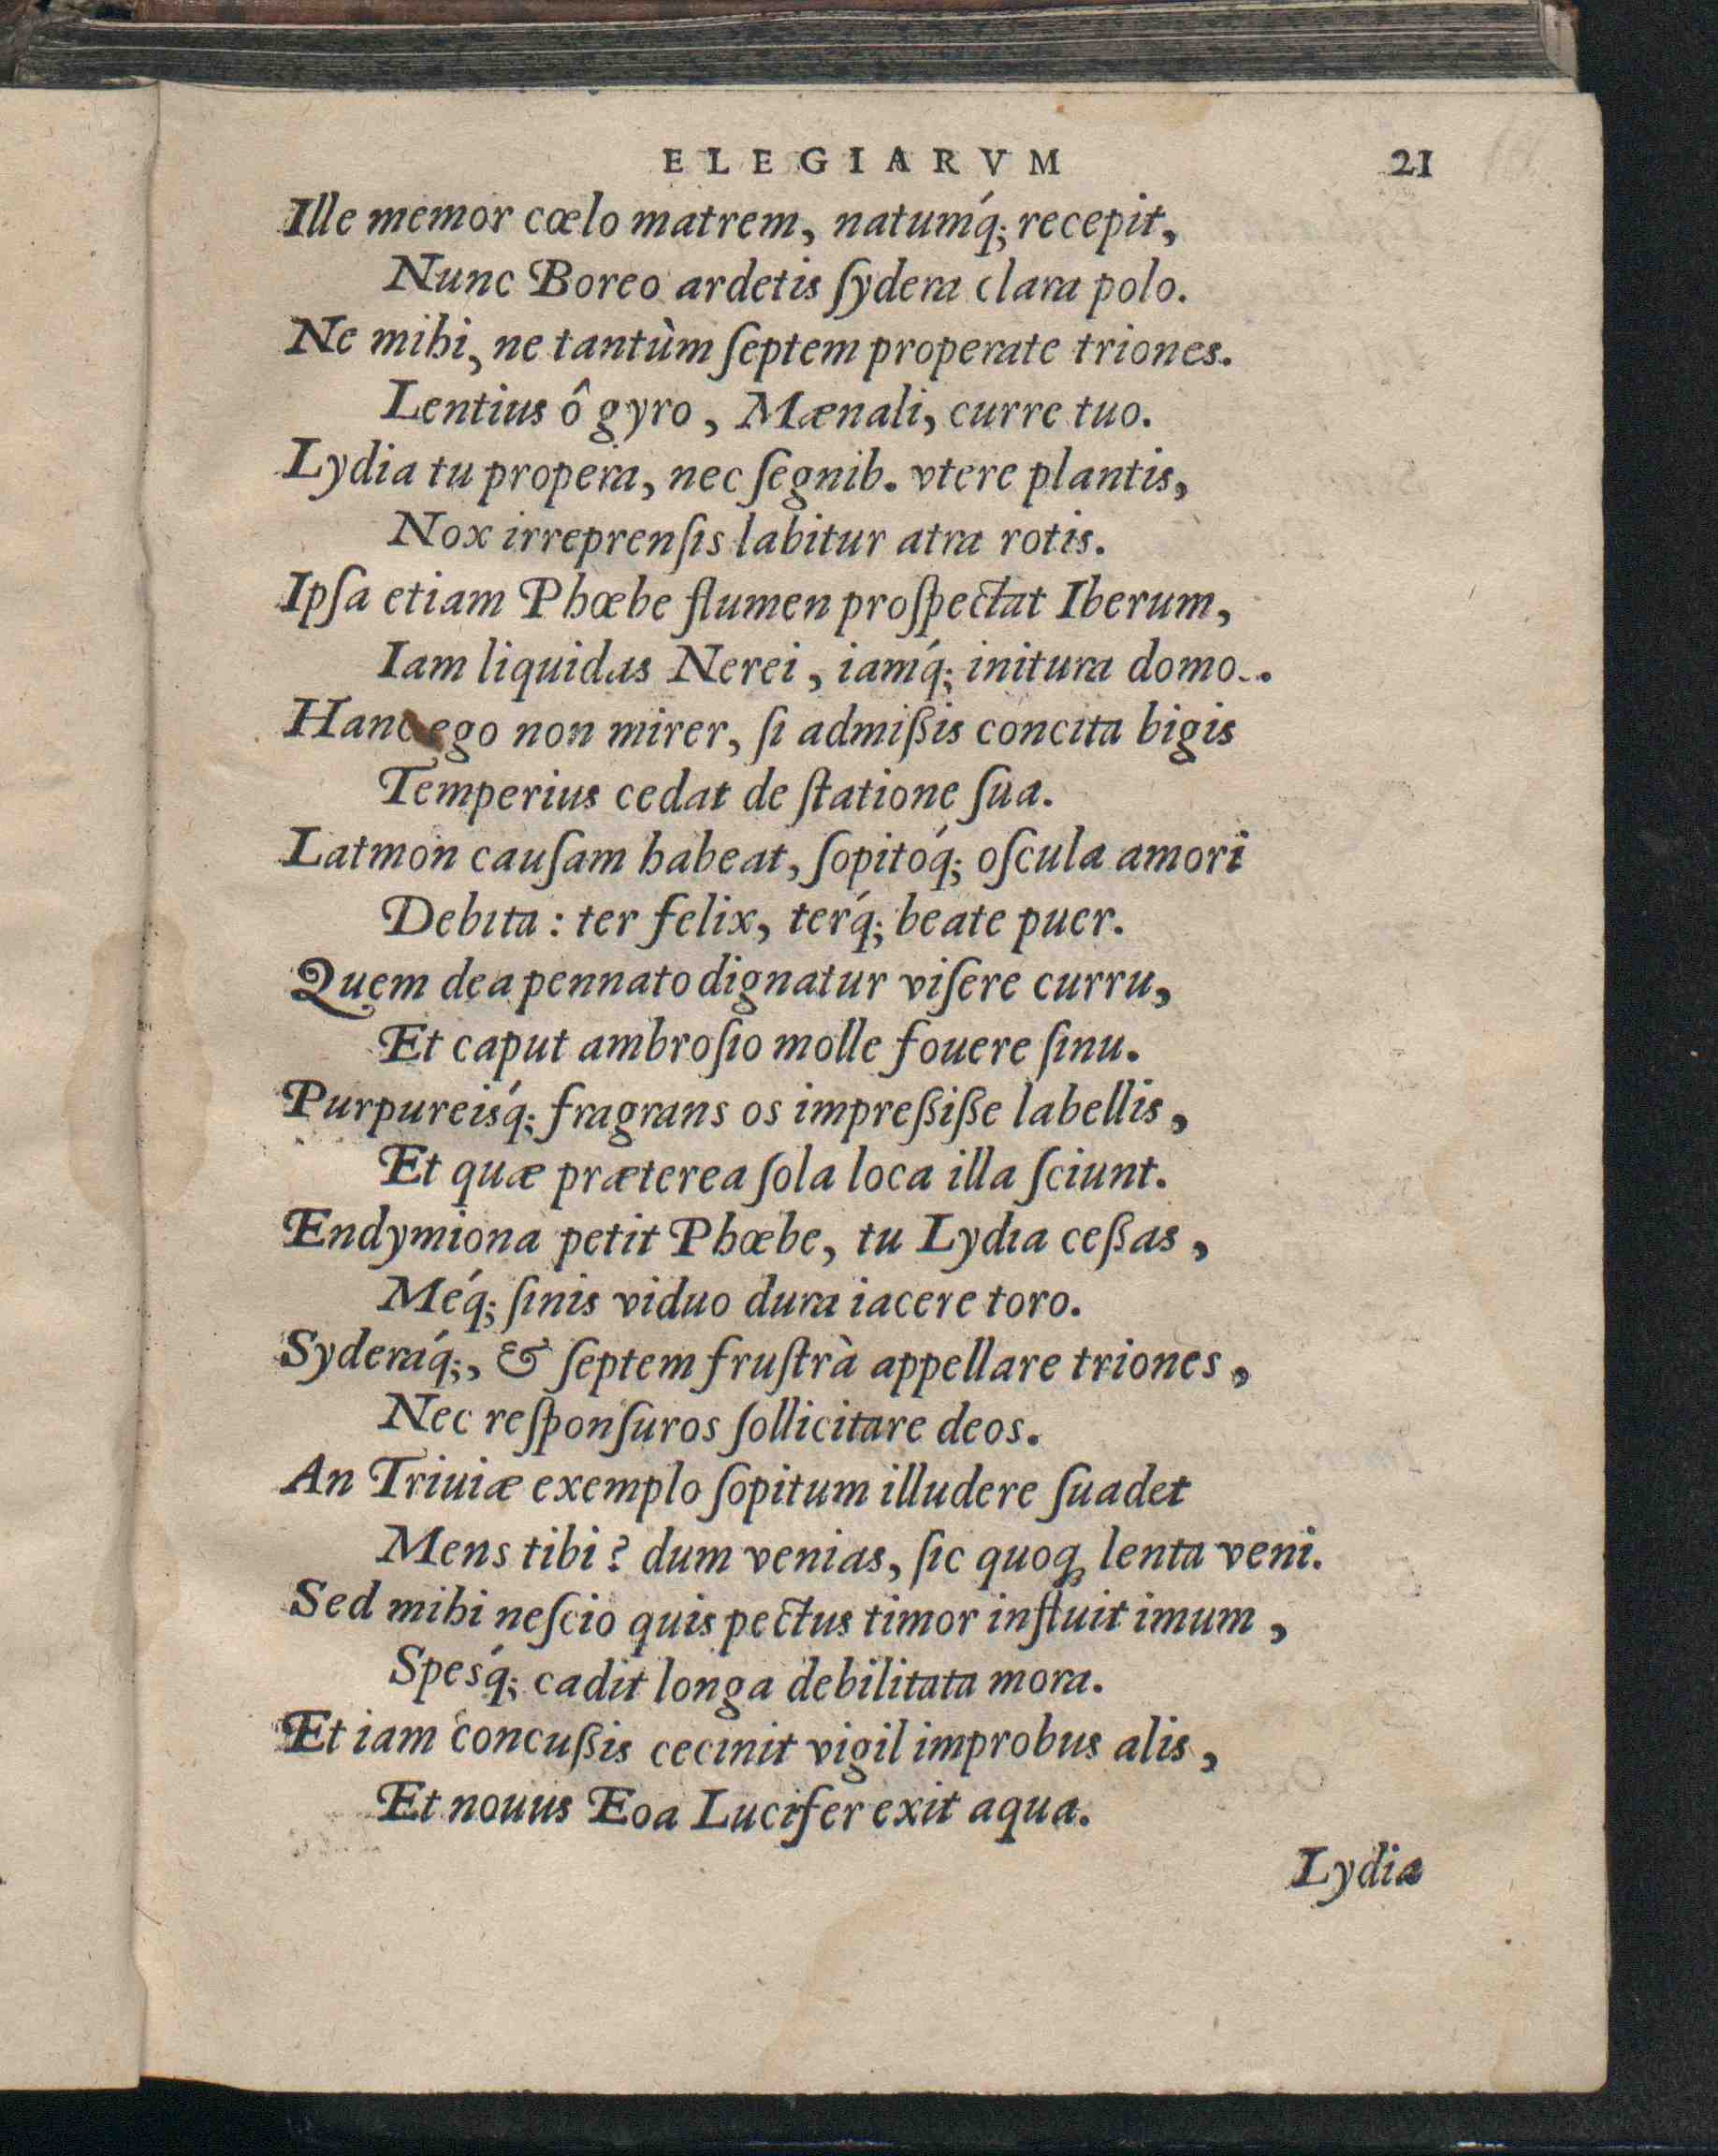 ELEGIARVM 21
Ille memor cœlo matrem, natumq́; recepit,
Nunc Boreo ardetis ſydera clara polo.
Ne mihi, ne tantùm ſeptem properate triones.
Lentius ô gyro, Mænali, curre tuo.
Lydia tu propera, nec ſegnib. vtere plantis,
Nox irreprenſis labitur atra rotis.
Ipſa etiam Phœbe flumen proſpectat Iberum,
Iam liquidas Nerei, iamq́; initura domo..
Hanc ego non mirer, ſi admißis concita bigis
Temperius cedat de ſtatione ſua.
Latmon cauſam habeat, ſopitoq́; oſcula amori
Debita: ter felix, terq́; beate puer.
Quem dea pennato dignatur viſere curru,
Et caput ambroſio molle fouere ſinu.
Purpureisq́; fragrans os impreßiße labellis,
Et quæ præterea ſola loca illa ſciunt.
Endymiona petit Phœbe, tu Lydia ceßas,
Méq; ſinis viduo dura iacere toro.
Syderaq́;, & ſeptem fruſtrà appellare triones,
Nec reſponſuros ſollicitare deos.
An Triuiæ exemplo ſopitum illudere ſuadet
Mens tibi? dum venias, ſic quoq; lenta veni.
Sed mihi neſcio quis pectus timor influit imum,
Spesq́; cadit longa debilitata mora.
Et iam concußis cecinit vigil improbus alis,
Et nouus Eoa Lucifer exit aqua.
Lydia